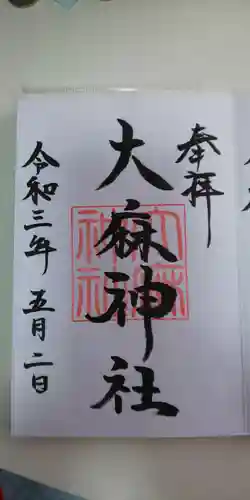 奉拝
大麻神社
令和三年 五月二日